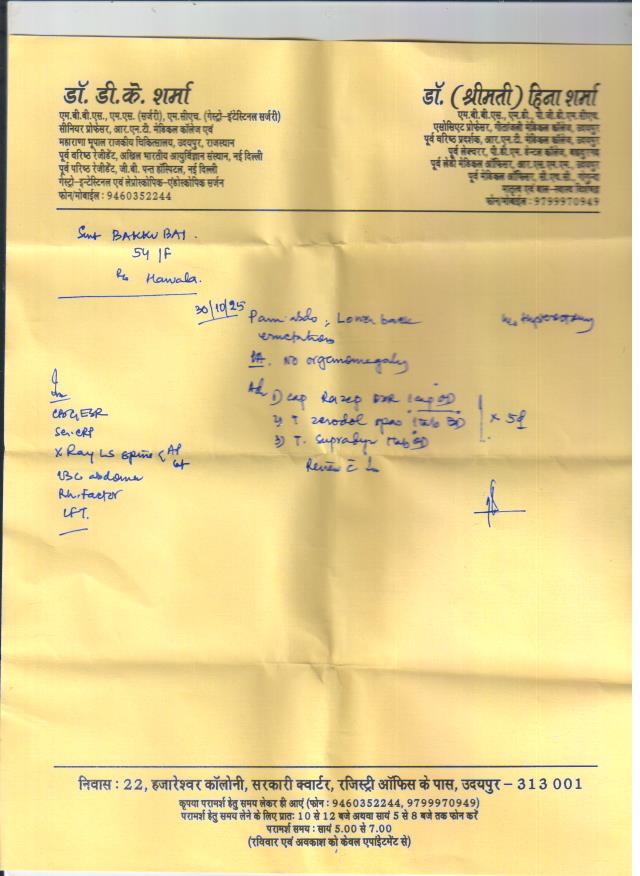 डॉ. डी.के. शर्मा
एम.बी.बी.एस., एम.एस. (सर्जरी), एम.सीएच. (गेस्ट्रो-इंटेस्टिनल सर्जरी)
सीनियर प्रोफेसर, आर.एन.टी. मेडिकल कॉलेज एवं
महाराणा भूपाल राजकीय चिकित्सालय, उदयपुर, राजस्थान
पूर्व वरिष्ठ रेजीडेंट, अखिल भारतीय आयुर्विज्ञान संस्थान, नई दिल्ली
पूर्व वरिष्ठ रेजीडेंट, जी.बी. पन्त हॉस्पिटल, नई दिल्ली
गेस्ट्रो-इन्टेस्टिनल एवं लेप्रोस्कोपिक-एंडोस्कोपिक सर्जन
फोन/मोबाईल : 9460352244
डॉ. (श्रीमती) हिना शर्मा
एम.बी.बी.एस., एम.डी., पी.जी.डी.एम.सी.एच.
एसोसिएट प्रोफेसर, गीतांजली मेडिकल कॉलेज, उदयपुर
पूर्व वरिष्ठ प्रदर्शक, आर.एन.टी. मेडिकल कॉलेज, उदयपुर
पूर्व लेक्चरर, पी.डी.एम. डेन्टल कॉलेज, बहादुरगढ़
पूर्व लेडी मेडिकल ऑफिसर, आर.एस.एम.एम., उदयपुर
पूर्व मेडिकल ऑफिसर, सी.एच.सी., गोगुन्दा
मातृत्व एवं बाल-स्वास्थ्य विशेषज्ञ
फोन/मोबाईल : 9799970949
Smt BAKKU BAI.
54/F
R/o Hawala.
30/10/25
Pain abdo; Lower back
eructations
P/A. NO organomegaly
Adv 1) cap Razep DSR 1 cap OD
2) T. zerodol spas 1 tab BD
3) T. Supradyn 1 tab OD
x 5d
Review c̄ In
In
CBC, ESR
Se. CRP
X Ray LS spine < AP Lat
USG abdomen
Rh. Factor
LFT.
निवास : 22, हजारेश्वर कॉलोनी, सरकारी क्वार्टर, रजिस्ट्री ऑफिस के पास, उदयपुर – 313 001
कृपया परामर्श हेतु समय लेकर ही आएं (फोन : 9460352244, 9799970949)
परामर्श हेतु समय लेने के लिए प्रातः 10 से 12 बजे अथवा सायं 5 से 8 बजे तक फोन करें
परामर्श समय : सायं 5.00 से 7.00
(रविवार एवं अवकाश को केवल एपाईंटमेंट से)